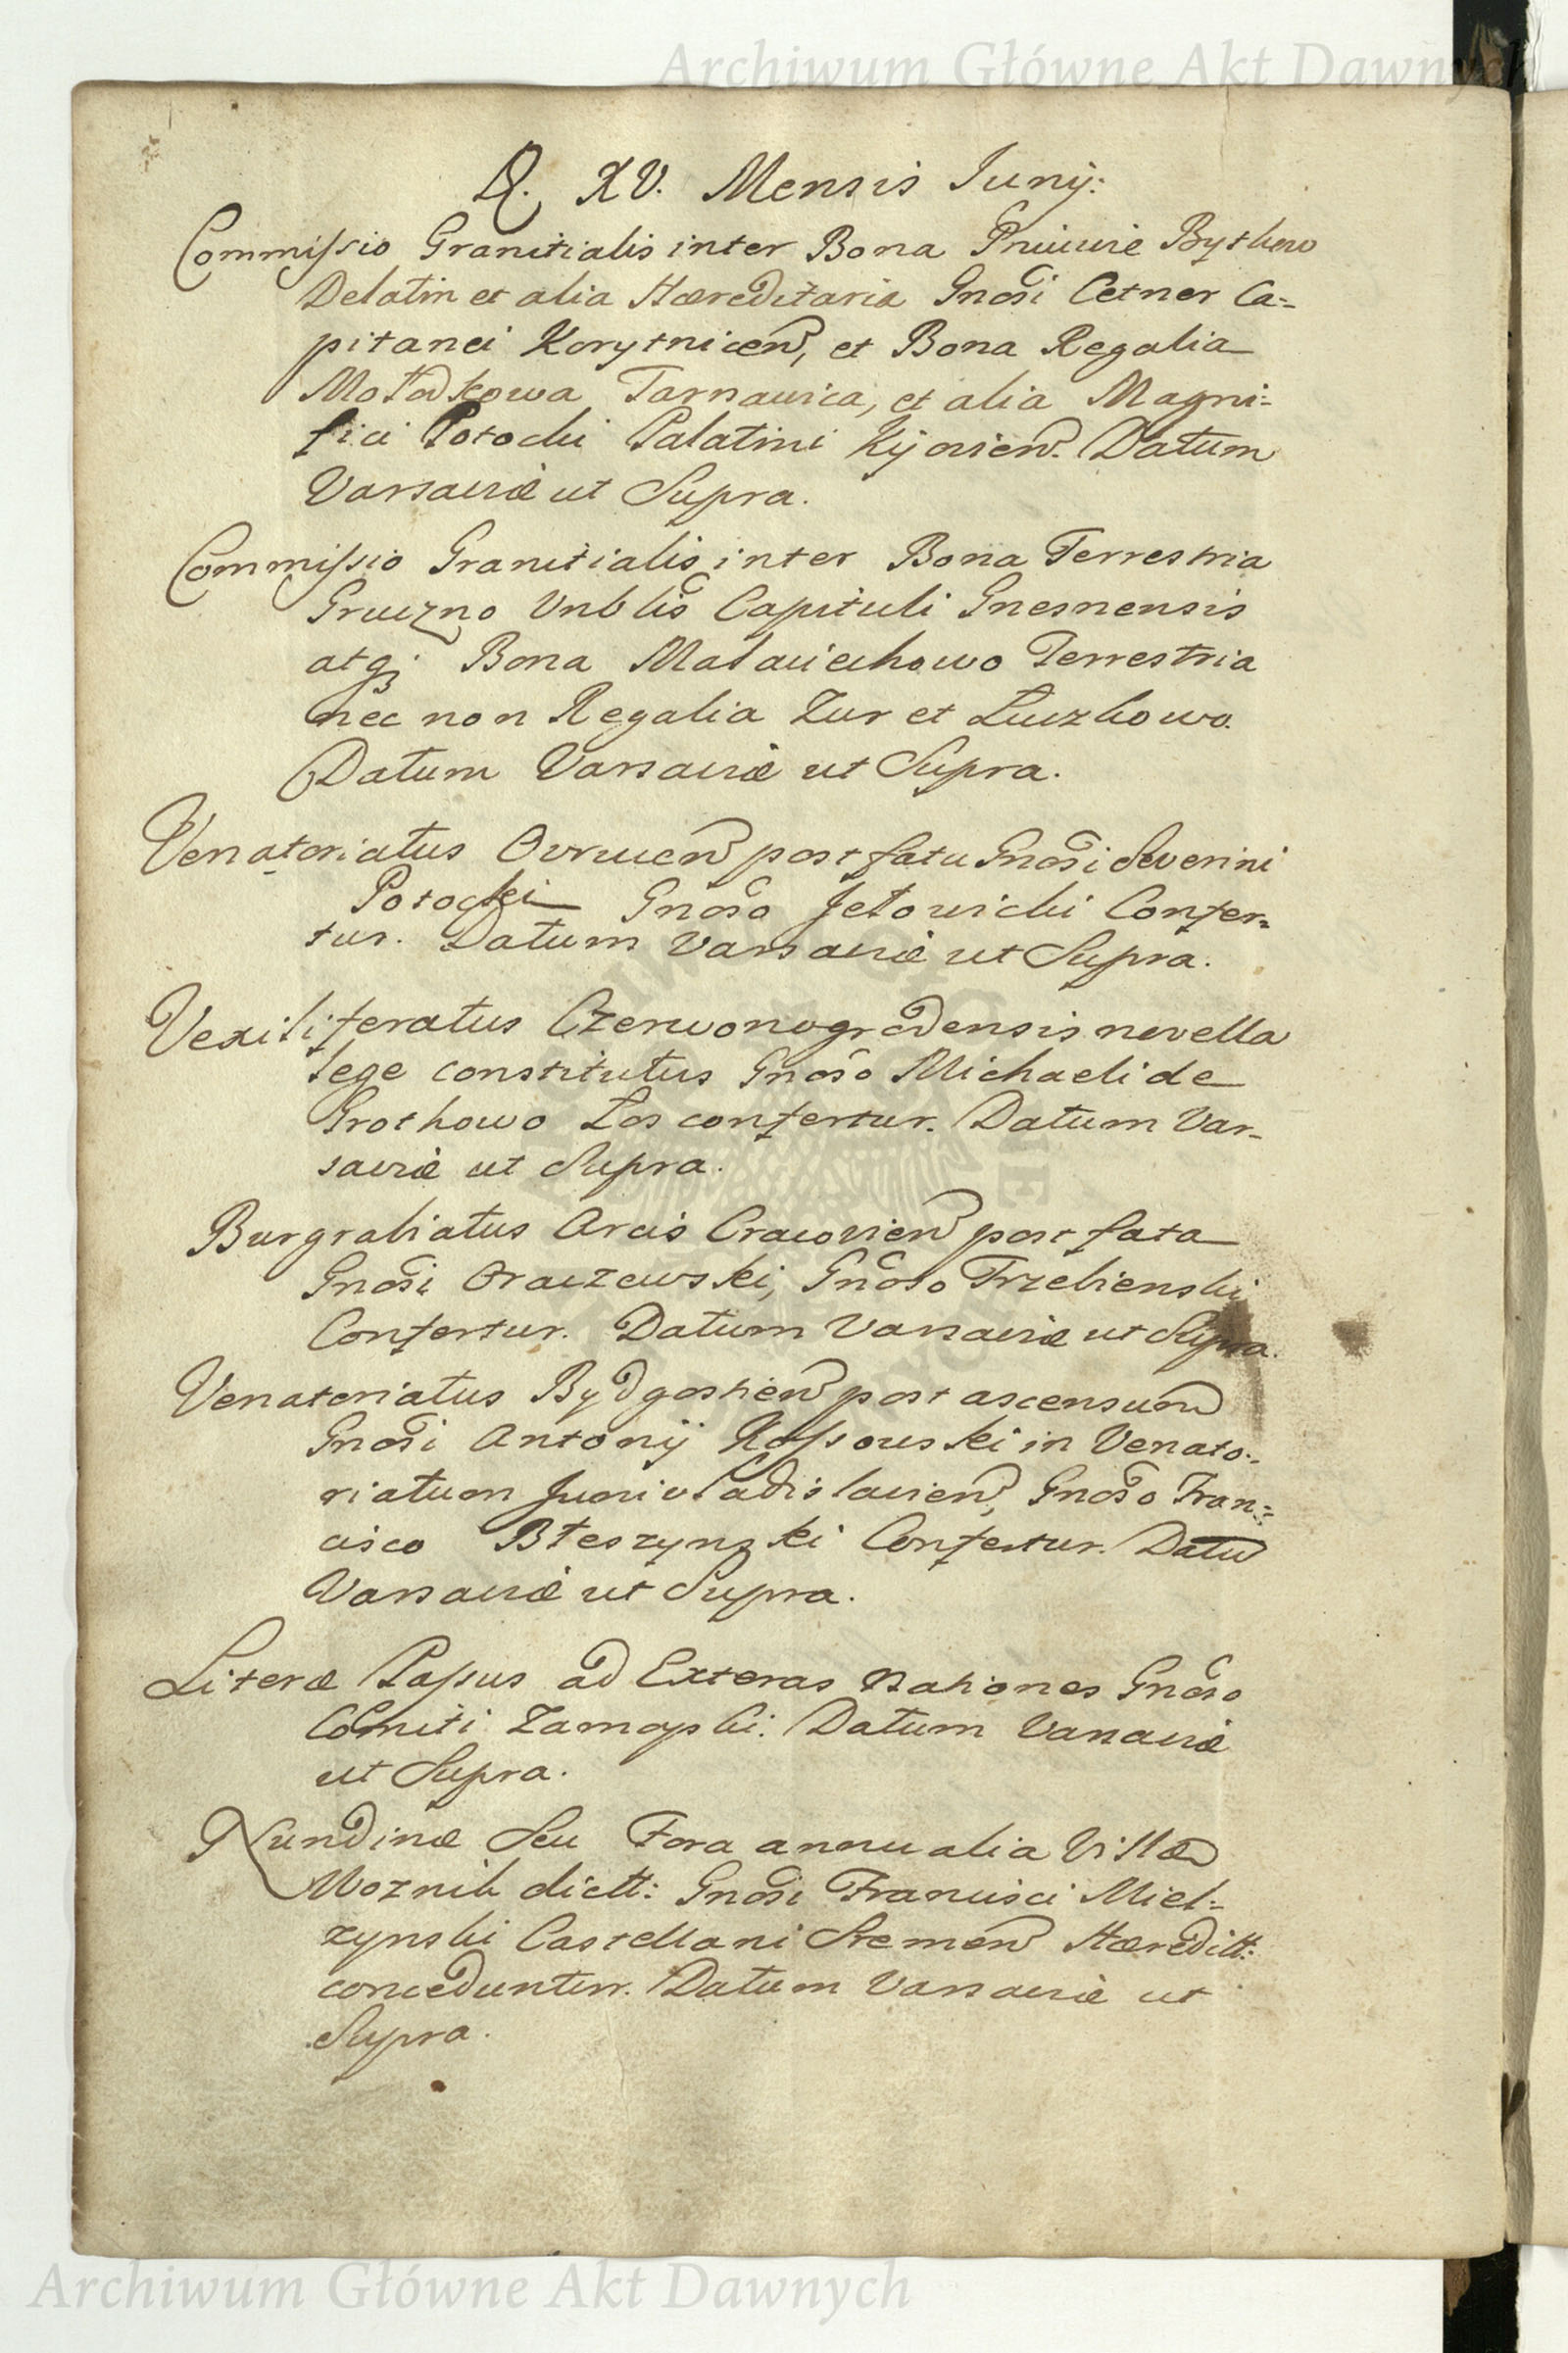 Archiwum Główne Akt Dawnych
D. XV. Mensis Junij:
Commissio Granitialis inter Bona Pniuvie Bythow
Delatin et alia Hæreditaria Gnosi Cetner Ca=
pitanei Korytnicen, et Bona Regalia
Mołodkowa Tarnavica, et alia Magni=
fici Potocki Palatini Kijovien. Datum
Varsaviæ ut Supra.
Commissio Granitialis inter Bona Terrestria
Gruczno Vnblis Capituli Gnesnensis
atq; Bona Malaciechowo Terrestria
nec non Regalia Zur et Luczkowo.
Datum Varsaviæ ut Supra.
Venatoriatus Ovrucen post fata Gnosi Severini
Potocki Gnoso Jełowicki Confer=
tur. Datum Varsaviæ ut Supra.
Vexiliferatus Czerwonogrodensis novella
lege constitutus Gnoso Michaeli de
Grothowo Los confertur. Datum Var=
saviæ ut Supra.
Burgrabiatus Arcis Cracovien post fata
Gnosi Oraczewski, Gnoso Trzebienski
Confertur. Datum Varsaviæ ut Supra.
Venatoriatus Bydgostien post ascensum
Gnosi Antonij Kossowski in Venato=
riatum Junivladislavien, Gnoso Fran=
cisco Błeszynski Confertur. Datu
Varsaviæ ut Supra.
Literæ Passus ad Exteras Nationes Gnoso
Comiti Zamoyski. Datum Varsaviæ
ut Supra.
Nundinæ Seu Fora annualia Villæ
Woznik dictt: Gnosi Francisci Miel=
zynski Castellani Sremen Hæreditt:
conceduntur. Datum Varsaviæ ut
Supra.
Archiwum Główne Akt Dawnych